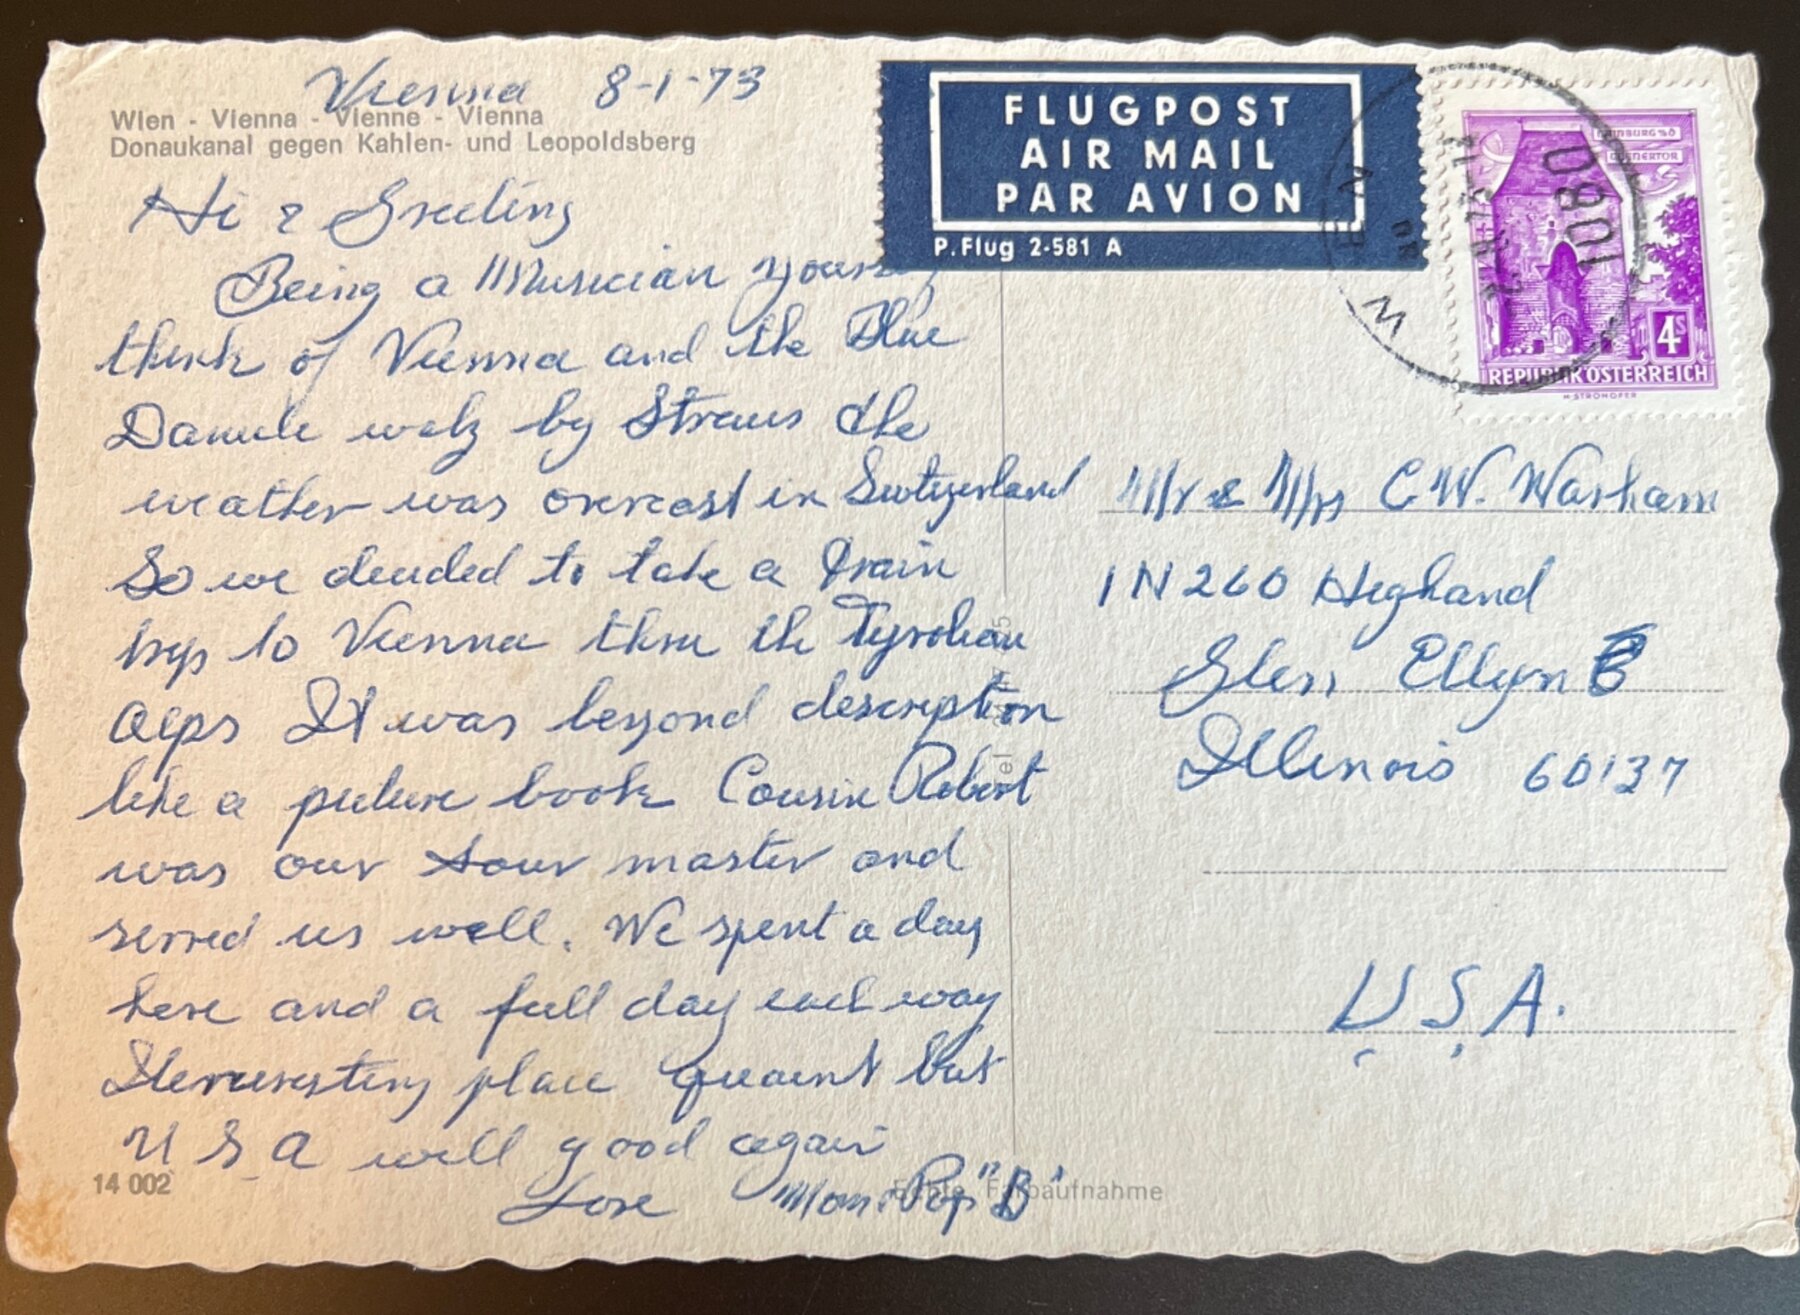 Vienna 8-1-73
Wien - Vienna - Vienne - Vienna
Donaukanal gegen Kahlen- und Leopoldsberg
Hi & Greeting
Being a Musician
think of Vienna and the Blue
Danube walz by Straus the
weather was overcast in Switzerland
So we decided to take a train
trip to Vienna thru the Tyrolean
Alps It was beyond description
like a picture book Cousin Robert
was our tour master and
served us well. We spent a day
here and a full day each way
place quaint but
U S A will good again
Love Mom & Pop "B"
14 002
Echte Farbaufnahme
FLUGPOST
AIR MAIL
PAR AVION
P. Flug 2-581 A
HAINBURG
WIENERTOR
1080
WIEN
4S
REPUBLIK ÖSTERREICH
H·STROHOFER
Mr & Mrs C W. Warham
1N260 Highand
Glen Ellyn
Illinois 60137
U.S.A.